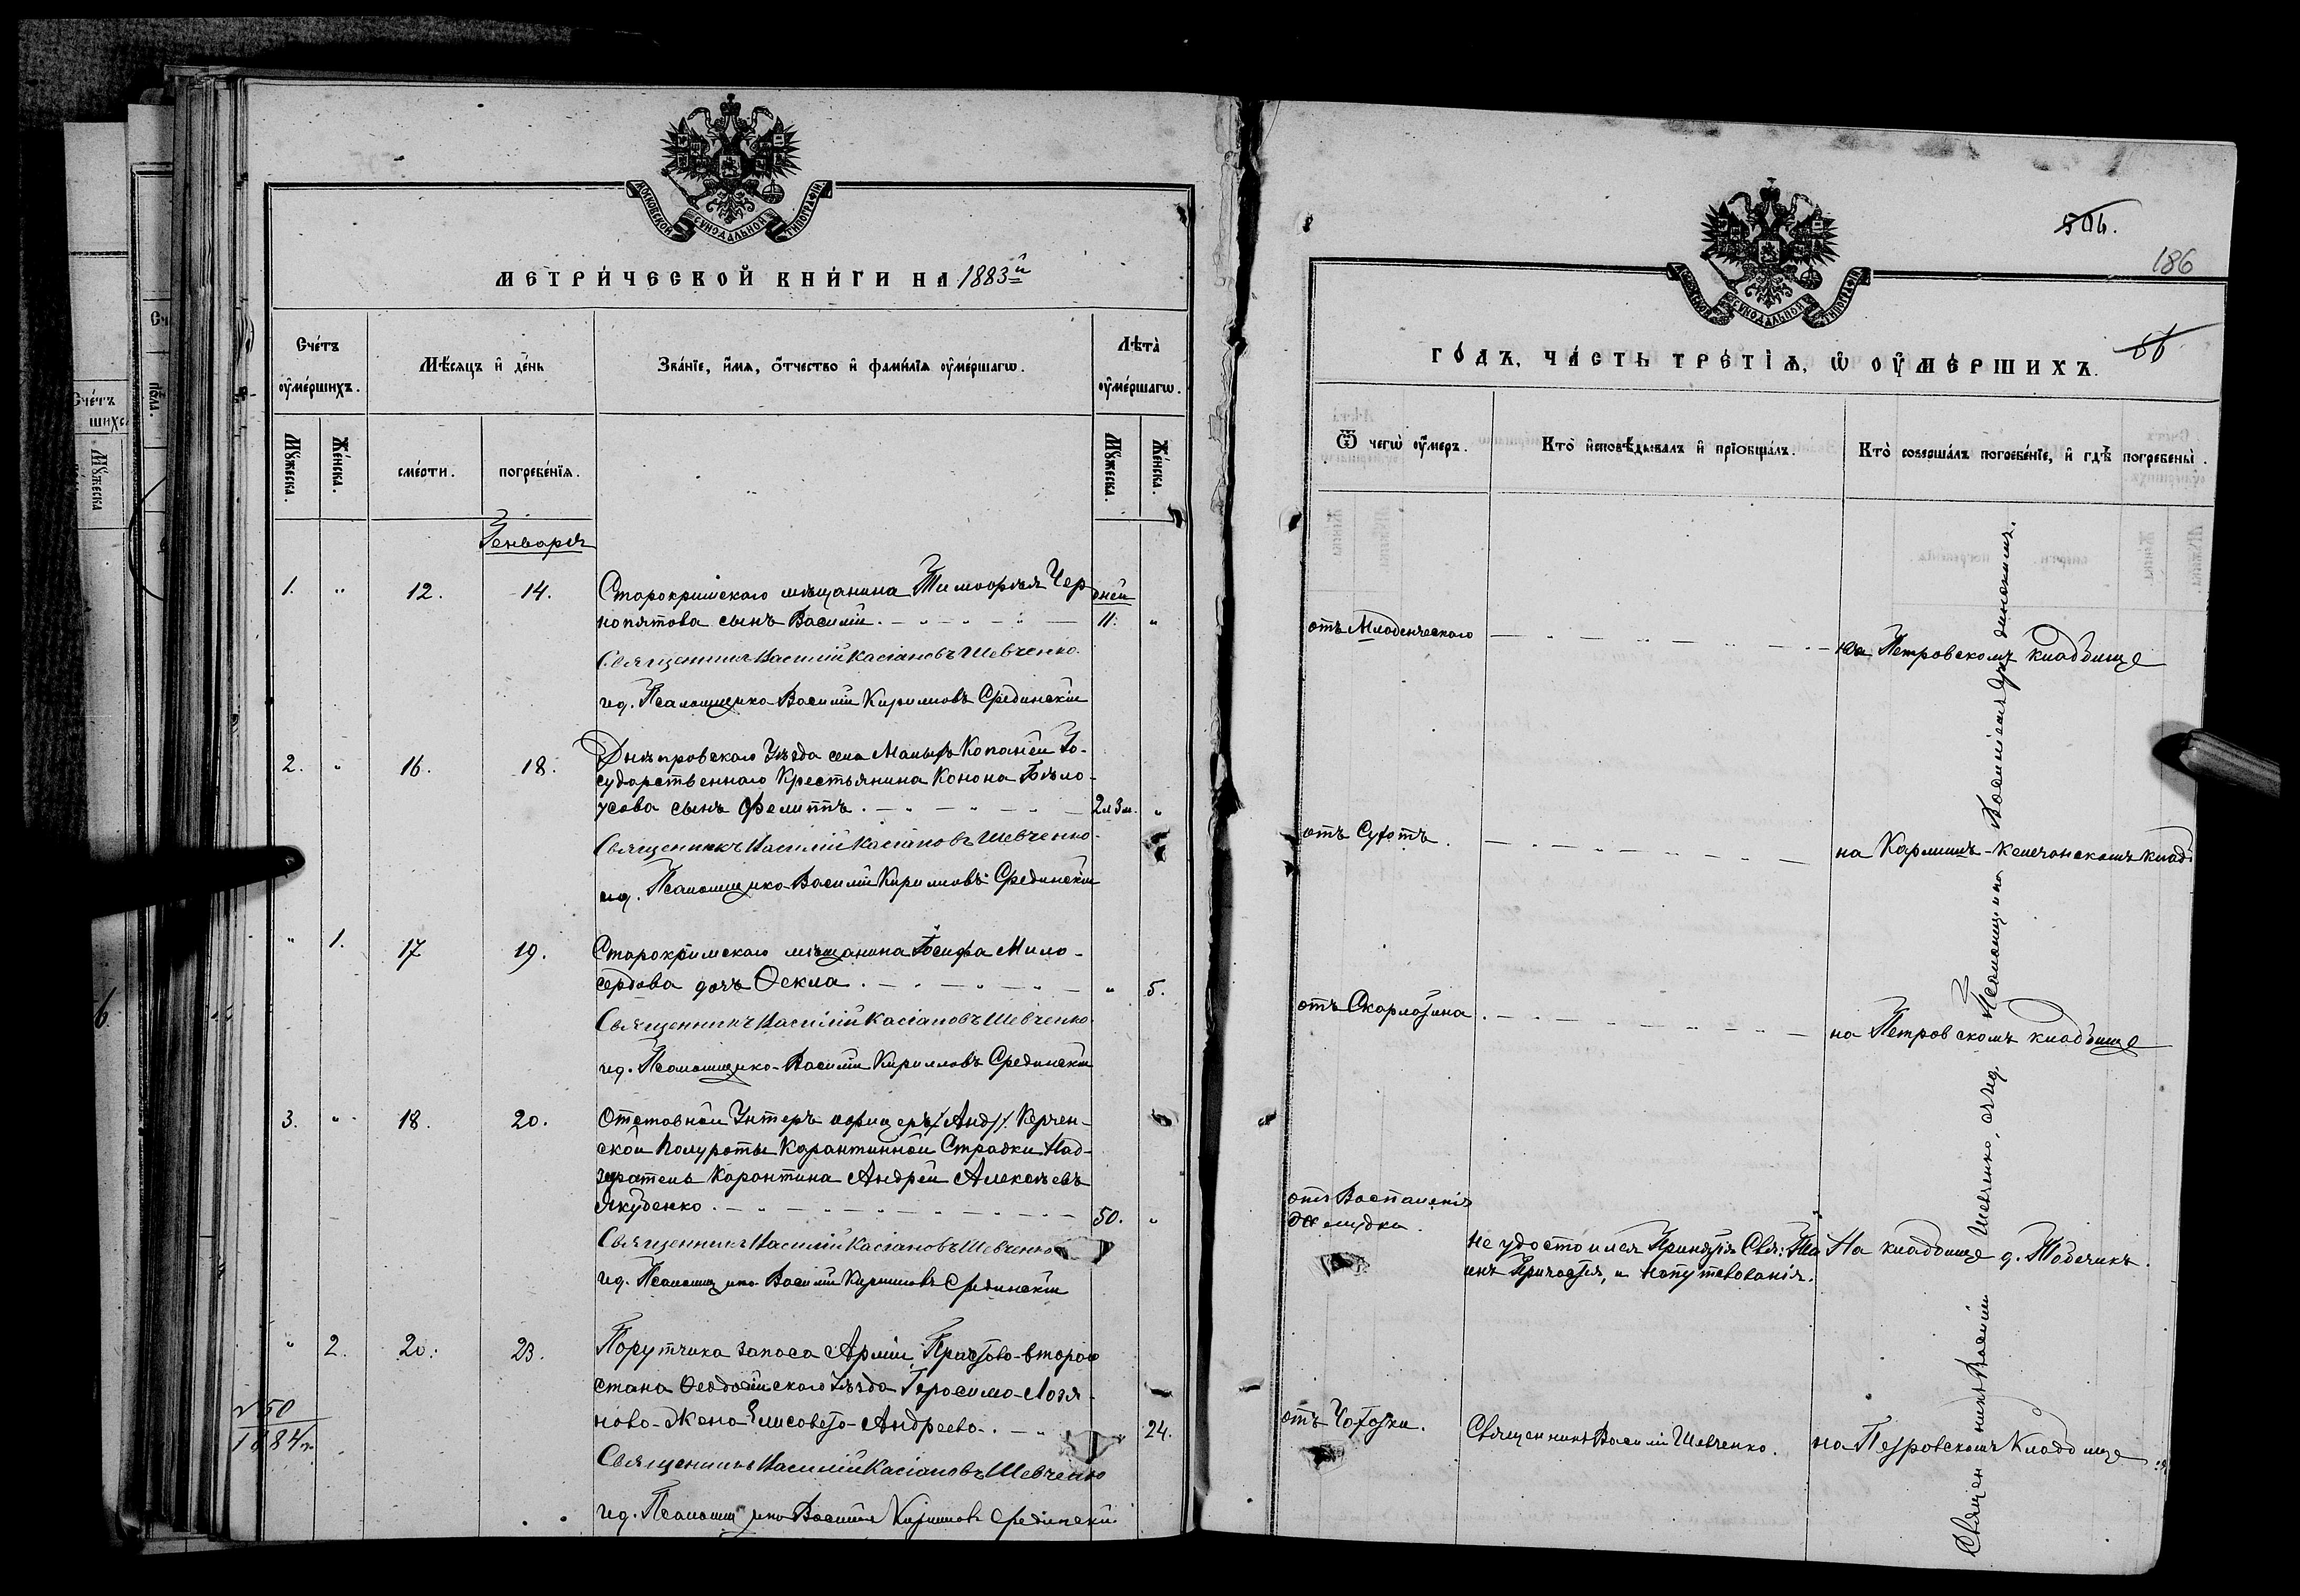 МОСКОВСКОЙ СѴНОДАЛЬНОЙ ТИПОГРАФІИ
МЕТРИ́ЧЕСКОЙ КНИ́ГИ НА 1883й
Сче́тъ ᲂу҆ме́ршихъ.
Мѣ́сѧцъ и҆ де́нь
Зва́нїе, и҆́мѧ, ѻ҆́тчество и҆ фамі́лїѧ ᲂу҆ме́ршагѡ.
Лѣ́та ᲂу҆ме́ршагѡ.
Мꙋ́жеска.
Же́нска.
сме́рти.
погребе́нїѧ.
Мꙋ́жеска.
Же́нска.
Генваря
1. " 12. 14. Старокримскаго мѣщанина Тимоофея Чер дней
нопятова сынъ Василій. 11. "
Священникъ Василій Касіановъ Шевченко
ид. Псаломщика Василій Кириловъ Срединскій
2. " 16. 18. Днѣпровскаго Уѣзда села Малыхъ Копаней Го-
сударственнаго Крестьянина Конона Бѣло-
усова сынъ Филиппъ. 2л 3м. "
Священникъ Василій Касіановъ Шевченко.
ид. Псаломщика Василій Кириловъ Срединскій
" 1. 17 19. Старокримскаго мѣщанина Іосифа Мило-
сердова дочь Ѳекла. " 5.
Священникъ Василій Касіановъ Шевченко
ид. Псаломщика Василій Кирилловъ Срединскій
3. " 18. 20. Отставной Унтеръ офицеръ Керчен-
ской Полуроты Карантинной Стражи Над-
зиратель Карантина Андрей Алексѣевъ
Якубенко. 50. "
Священникъ Василій Касіановъ Шевченко
ид. Псаломщика Василій Кириловъ Срединскій
" 2. 20. 23. Порутчика запаса Арміи, Пристава втораго
стана Ѳеодосійскаго Уѣзда Герасима Лозя-
нова Жена Елисавета Андреева. " 24.
№ 50
1884 г.
Священникъ Василій Касіановъ Шевченко
ид. Псаломщика Василій Кириловъ Срединскій
506.
186
МОСКОВСКОЙ СѴНОДАЛЬНОЙ ТИПОГРАФІИ
ГО́ДЪ, ЧА́СТЬ ТРЕ́ТЇѦ, Ѡ҆ ОУ҆МЕ́РШИХЪ.
Ѿ чегѡ̀ ᲂу҆́меръ.
Кто̀ и҆сповѣ́дывалъ и҆ прїѡбща́лъ.
Кто̀ соверша́лъ погребе́нїе, и҆ гдѣ̀ погребены̀.
отъ Младенческаго на Петровскомъ кладбище
отъ Сухотъ. на Кармишъ-Келечинскомъ клад.
отъ Скарлатина. на Петровскомъ кладбище
отъ Воспаленія
желудка.
Не удостоился Принятія Свя: Та
инъ Причастія, и Напутствованія.
На кладбище д. Тобечикъ.
отъ Чахотки. Священникъ Василій Шевченко. на Петровскомъ Кладбище
Священникъ Василій Шевченко, съ ид. Псаломщика Василіемъ Срединскимъ.